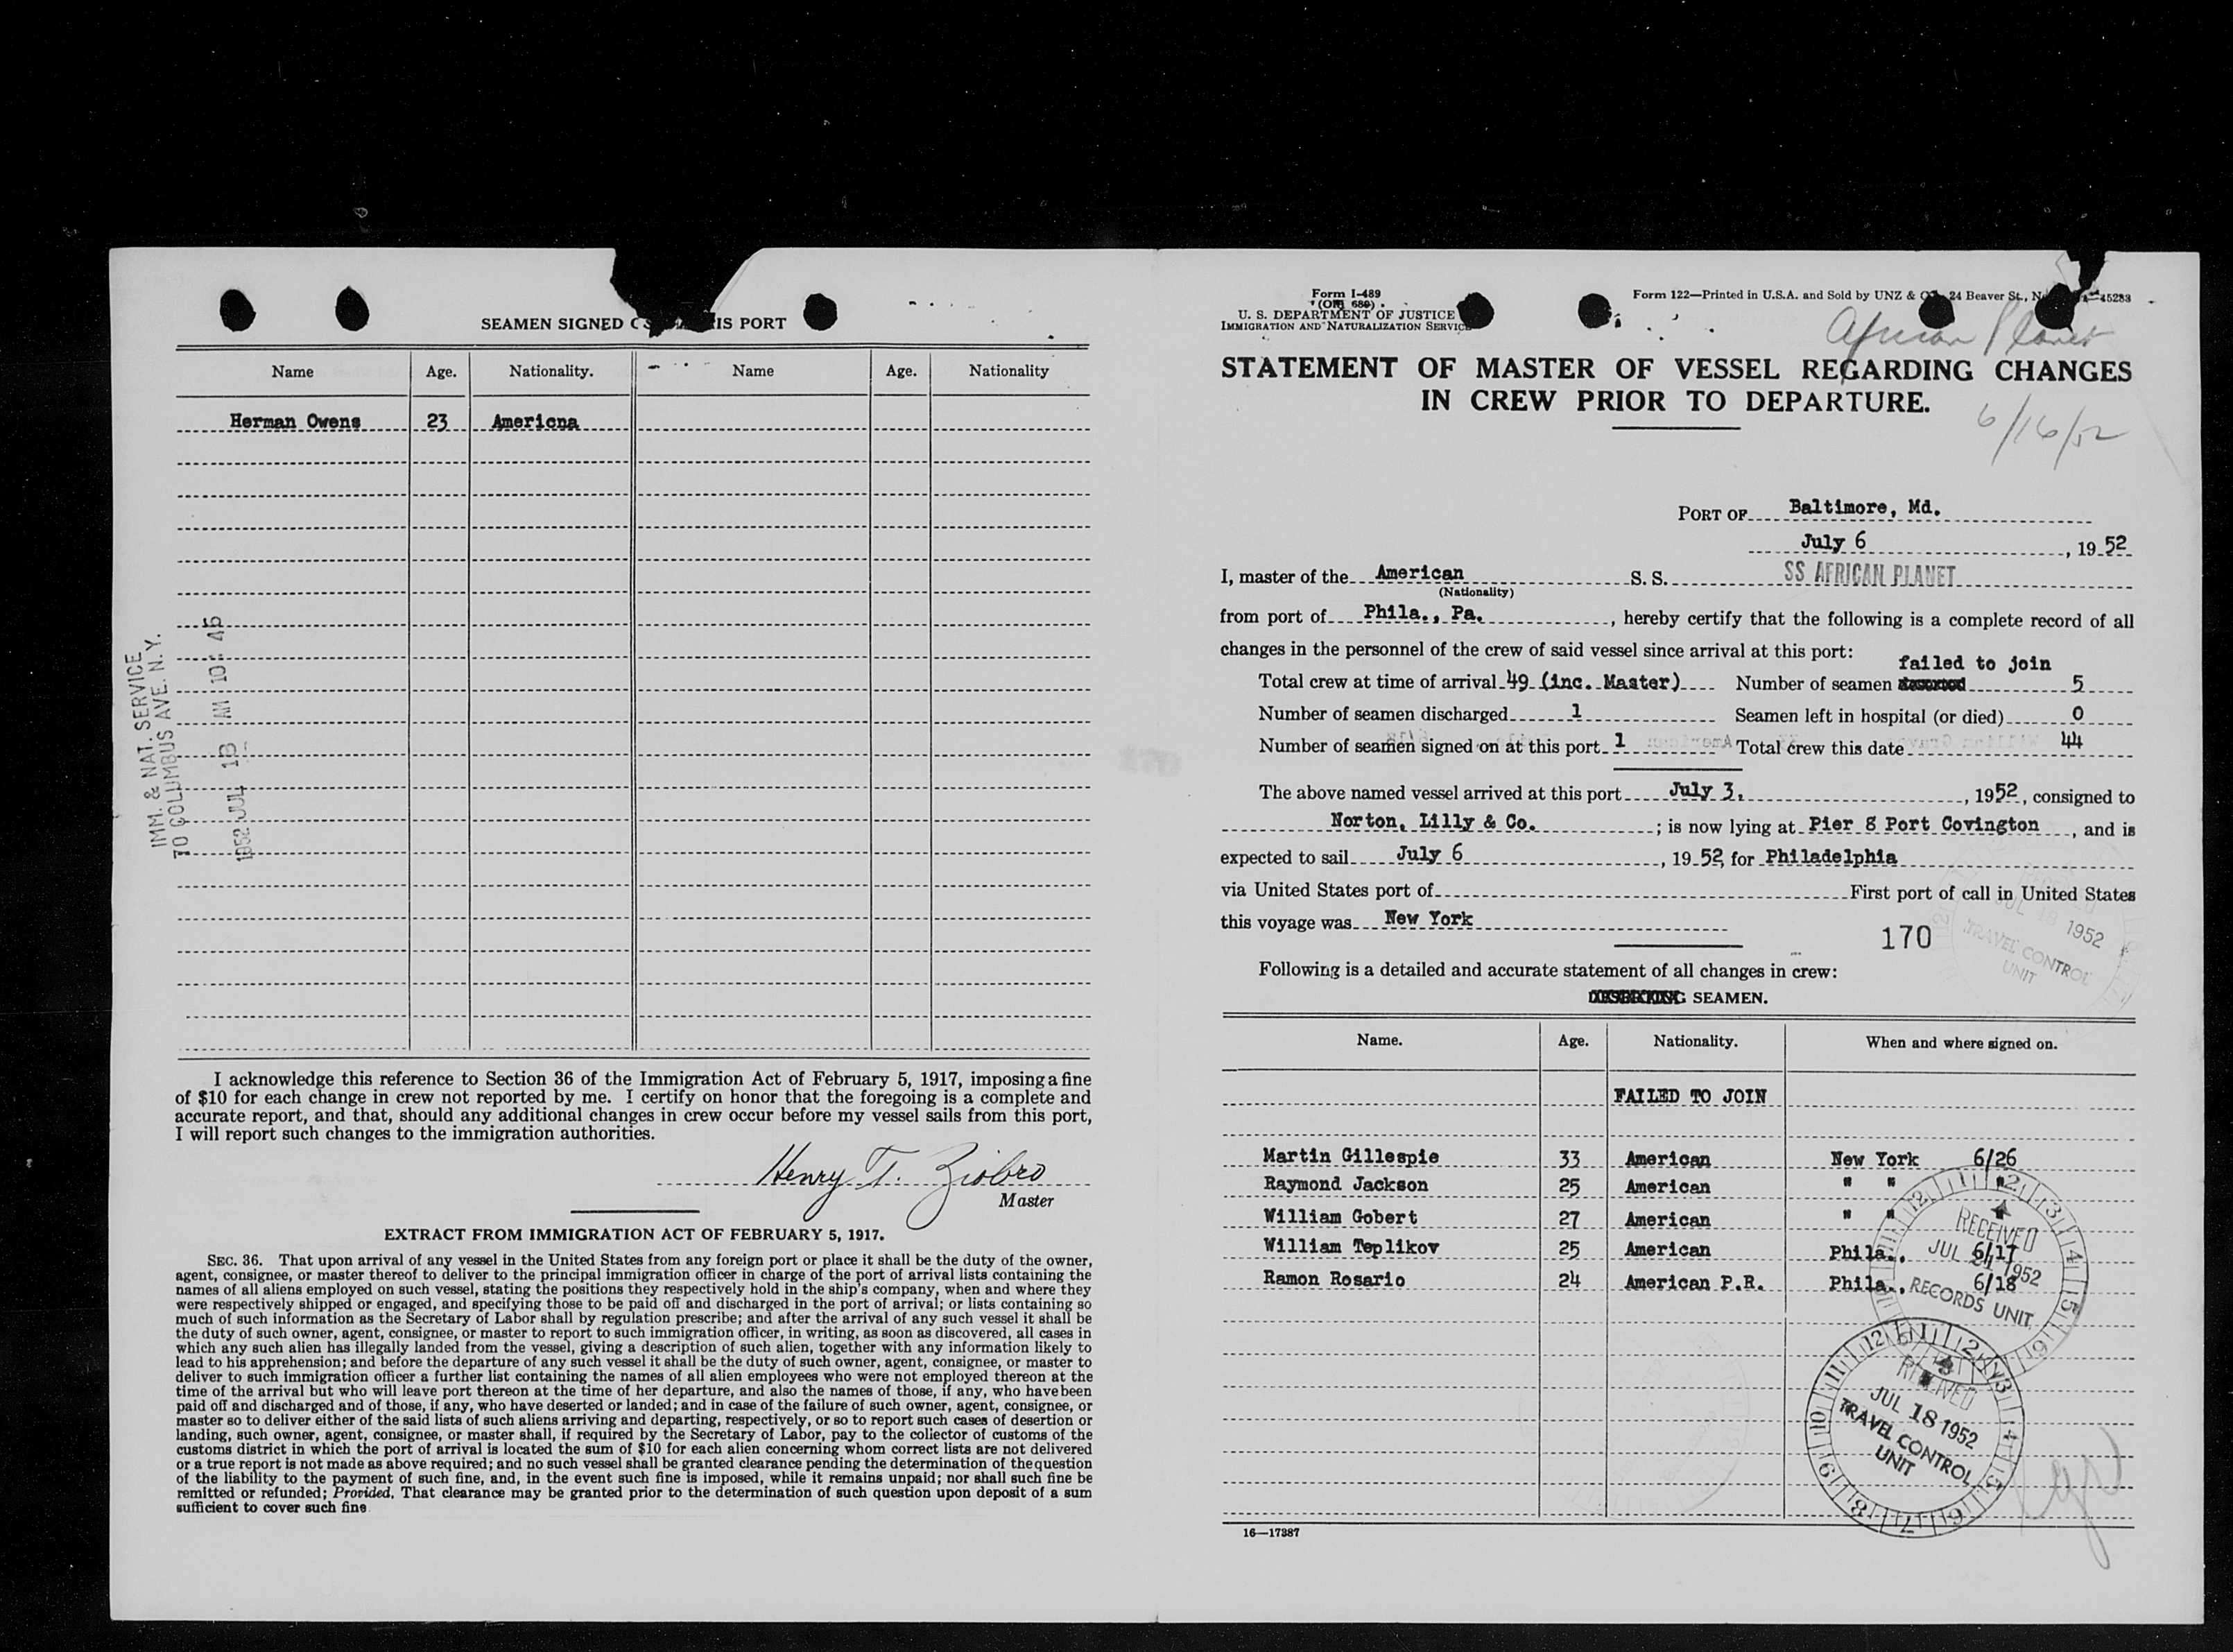 SEAMEN SIGNED IS PORT
Name Age. Nationality. Name Age. Nationality
Herman Owens 23 Americna
IMM. & NAT. SERVICE
70 COLUMBUS AVE. N.Y.
1952 JUL 18 AM 10:45
I acknowledge this reference to Section 36 of the Immigration Act of February 5, 1917, imposing a fine
of $10 for each change in crew not reported by me. I certify on honor that the foregoing is a complete and
accurate report, and that, should any additional changes in crew occur before my vessel sails from this port,
I will report such changes to the immigration authorities.
Henry T. Ziobro
Master
EXTRACT FROM IMMIGRATION ACT OF FEBRUARY 5, 1917.
SEC. 36. That upon arrival of any vessel in the United States from any foreign port or place it shall be the duty of the owner,
agent, consignee, or master thereof to deliver to the principal immigration officer in charge of the port of arrival lists containing the
names of all aliens employed on such vessel, stating the positions they respectively hold in the ship's company, when and where they
were respectively shipped or engaged, and specifying those to be paid off and discharged in the port of arrival; or lists containing so
much of such information as the Secretary of Labor shall by regulation prescribe; and after the arrival of any such vessel it shall be
the duty of such owner, agent, consignee, or master to report to such immigration officer, in writing, as soon as discovered, all cases in
which any such alien has illegally landed from the vessel, giving a description of such alien, together with any information likely to
lead to his apprehension; and before the departure of any such vessel it shall be the duty of such owner, agent, consignee, or master to
deliver to such immigration officer a further list containing the names of all alien employees who were not employed thereon at the
time of the arrival but who will leave port thereon at the time of her departure, and also the names of those, if any, who have been
paid off and discharged and of those, if any, who have deserted or landed; and in case of the failure of such owner, agent, consignee, or
master so to deliver either of the said lists of such aliens arriving and departing, respectively, or so to report such cases of desertion or
landing, such owner, agent, consignee, or master shall, if required by the Secretary of Labor, pay to the collector of customs of the
customs district in which the port of arrival is located the sum of $10 for each alien concerning whom correct lists are not delivered
or a true report is not made as above required; and no such vessel shall be granted clearance pending the determination of the question
of the liability to the payment of such fine, and, in the event such fine is imposed, while it remains unpaid; nor shall such fine be
remitted or refunded; Provided, That clearance may be granted prior to the determination of such question upon deposit of a sum
sufficient to cover such fine
Form I-489
(Old 689)
U. S. DEPARTMENT OF JUSTICE
IMMIGRATION AND NATURALIZATION SERVICE
Form 122—Printed in U.S.A. and Sold by UNZ & 24 Beaver St., 45283
African Planet
STATEMENT OF MASTER OF VESSEL REGARDING CHANGES
IN CREW PRIOR TO DEPARTURE.
6/16/52
PORT OF Baltimore, Md.
July 6, 1952
I, master of the American S. S. SS AFRICAN PLANET
(Nationality)
from port of Phila., Pa., hereby certify that the following is a complete record of all
changes in the personnel of the crew of said vessel since arrival at this port:
failed to join
Total crew at time of arrival 49 (inc. Master) Number of seamen 5
Number of seamen discharged 1 Seamen left in hospital (or died) 0
Number of seamen signed on at this port 1 Total crew this date 44
The above named vessel arrived at this port July 3, 1952, consigned to
Norton, Lilly & Co. ; is now lying at Pier 8 Port Covington, and is
expected to sail July 6, 1952, for Philadelphia
via United States port of First port of call in United States
this voyage was New York
170
18 1952
TRAVEL CONTROL
UNIT
Following is a detailed and accurate statement of all changes in crew:
SEAMEN.
Name. Age. Nationality. When and where signed on.
FAILED TO JOIN
Martin Gillespie 33 American New York 6/26
Raymond Jackson 25 American " " "
William Gobert 27 American " "
William Teplikov 25 American Phila., 6/17
Ramon Rosario 24 American P.R. Phila., 6/18
RECEIVED
JUL 1952
RECORDS UNIT
RECEIVED
JUL 18 1952
TRAVEL CONTROL
UNIT
16—17387